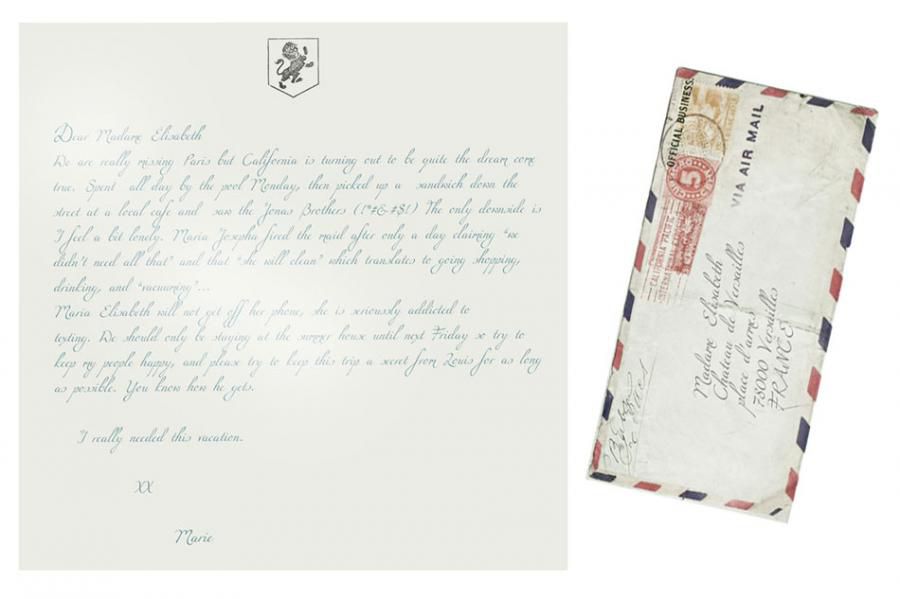 Dear Madame Elisabeth
We are really missing Paris but California is turning out to be quite the dream come
true. Spent all day by the pool Monday, then picked up a sandwich down the
street at a local cafe and saw the Jonas Brothers (!*#&#$!) The only downside is
I feel a bit lonely. Maria Josepha fired the maid after only a day claiming "we
didn't need all that" and that "she will clean" which translates to going shopping,
drinking, and "vacuuming"...
Maria Elisabeth will not get off her phone, she is seriously addicted to
texting. We should only be staying at the summer house until next Friday so try to
keep my people happy, and please try to keep this trip a secret from Louis for as long
as possible. You know how he gets.
"I really needed this vacation.
XX
Marie
OFFICIAL BUSINESS.
5
CALIFORNIA PACIFIC
INTERNATIONAL
VIA AIR MAIL
Madame Elisabeth
Chateau de Versailles
place d'armes
78000 Versailles
FRANCE